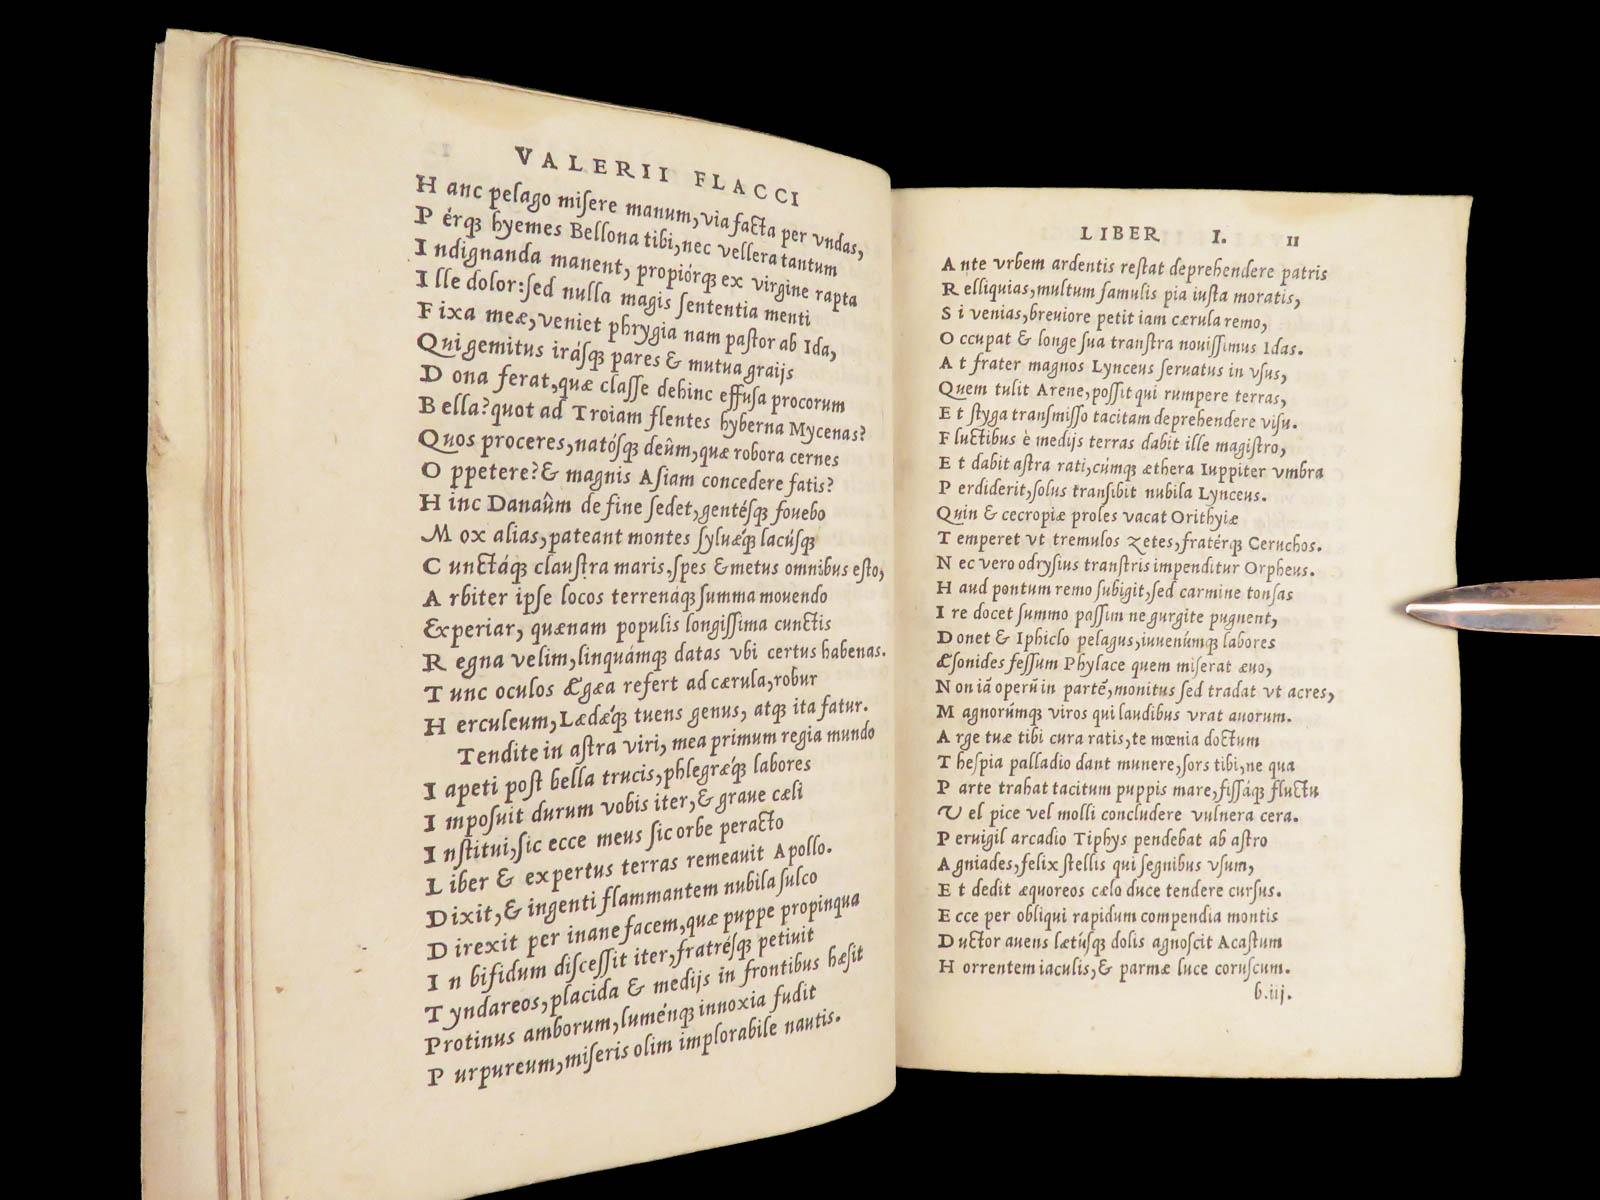 VALERII FLACCI
Hanc pelago miſere manum, via facta per vndas,
Pérq; hyemes Bellona tibi, nec vellera tantum
Indignanda manent, propiórq; ex virgine rapta
Ille dolor: ſed nulla magis ſententia menti
Fixa meæ, veniet phrygia nam paſtor ab Ida,
Qui gemitus iráſq; pares & mutua graijs
Dona ferat, quæ claſſe dehinc effuſa procorum
Bella? quot ad Troiam flentes hyberna Mycenas?
Quos proceres, natóſq; deûm, quæ robora cernes
Oppetere? & magnis Aſiam concedere fatis?
Hinc Danaûm de fine ſedet, gentéſq; fouebo
Mox alias, pateant montes ſyluæ´q; lacúſq;
Cunctáq; clauſtra maris, ſpes & metus omnibus eſto,
Arbiter ipſe locos terrenáq; ſumma mouendo
Experiar, quænam populis longiſſima cunctis
Regna velim, linquámq; datas vbi certus habenas.
Tunc oculos Ægæa refert ad cærula, robur
Herculeum, Lædæ´q; tuens genus, atq; ita fatur.
Tendite in aſtra viri, mea primum regia mundo
Iapeti poſt bella trucis, phlegræ´q; labores
Impoſuit durum vobis iter, & graue cæli
Inſtitui, ſic ecce meus ſic orbe peracto
Liber & expertus terras remeauit Apollo.
Dixit, & ingenti flammantem nubila ſulco
Direxit per inane facem, quæ puppe propinqua
In bifidum diſceſſit iter, fratréſq; petiuit
Tyndareos, placida & medijs in frontibus hæſit
Protinus amborum, luménq; innoxia fudit
Purpureum, miſeris olim implorabile nautis.
LIBER I. 11
Ante vrbem ardentis reſtat deprehendere patris
Relliquias, multum famulis pia iuſta moratis,
Si venias, breuiore petit iam cærula remo,
Occupat & longe ſua tranſtra nouiſſimus Idas.
At frater magnos Lynceus ſeruatus in vſus,
Quem tulit Arene, poſſit qui rumpere terras,
Et ſtyga tranſmiſſo tacitam deprehendere viſu.
Fluctibus è medijs terras dabit ille magiſtro,
Et dabit aſtra rati, cúmq; æthera Iuppiter vmbra
Perdiderit, ſolus tranſibit nubila Lynceus.
Quin & cecropiæ proles vacat Orithyiæ
Temperet vt tremulos Zetes, fratérq; Ceruchos.
Nec vero odryſius tranſtris impenditur Orpheus.
Haud pontum remo ſubigit, ſed carmine tonſas
Ire docet ſummo paſſim ne gurgite pugnent,
Donet & Iphiclo pelagus, iuuenúmq; labores
Æſonides feſſum Phylace quem miſerat æuo,
Non iã operũ in partẽ, monitus ſed tradat vt acres,
Magnorúmq; viros qui laudibus vrat auorum.
Arge tuæ tibi cura ratis, te mœnia doctum
Theſpia palladio dant munere, ſors tibi, ne qua
Parte trahat tacitum puppis mare, fiſſáq; fluctu
Vel pice vel molli concludere vulnera cera.
Peruigil arcadio Tiphys pendebat ab aſtro
Agniades, felix ſtellis qui ſegnibus vſum,
Et dedit æquoreos cælo duce tendere curſus.
Ecce per obliqui rapidum compendia montis
Ductor auens lætúſq; dolis agnoſcit Acaſtum
Horrentem iaculis, & parmæ luce coruſcum.
b.iij.